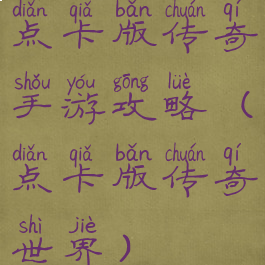 diǎn qiǎ bǎn chuán qí
点卡版传奇
shǒu yóu gōng lüè
手游攻略（
diǎn qiǎ bǎn chuán qí
点卡版传奇
shì jiè
世界）